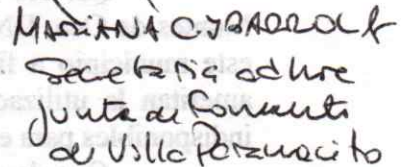 MARIANA C. IBARROLA
Secretaria ad hoc
Junta de Fomento
de Villa Paranacito